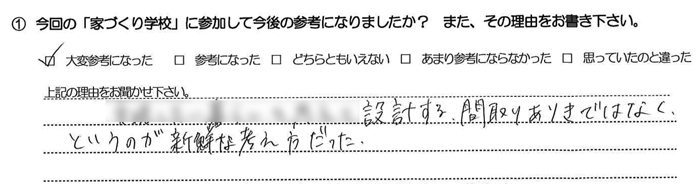 ① 今回の「家づくり学校」に参加して今後の参考になりましたか？ また、その理由をお書き下さい。
☑ 大変参考になった □ 参考になった □ どちらともいえない □ あまり参考にならなかった □ 思っていたのと違った
上記の理由をお聞かせ下さい。
設計する、間取りありきではなく、
というのが新鮮な考え方だった。